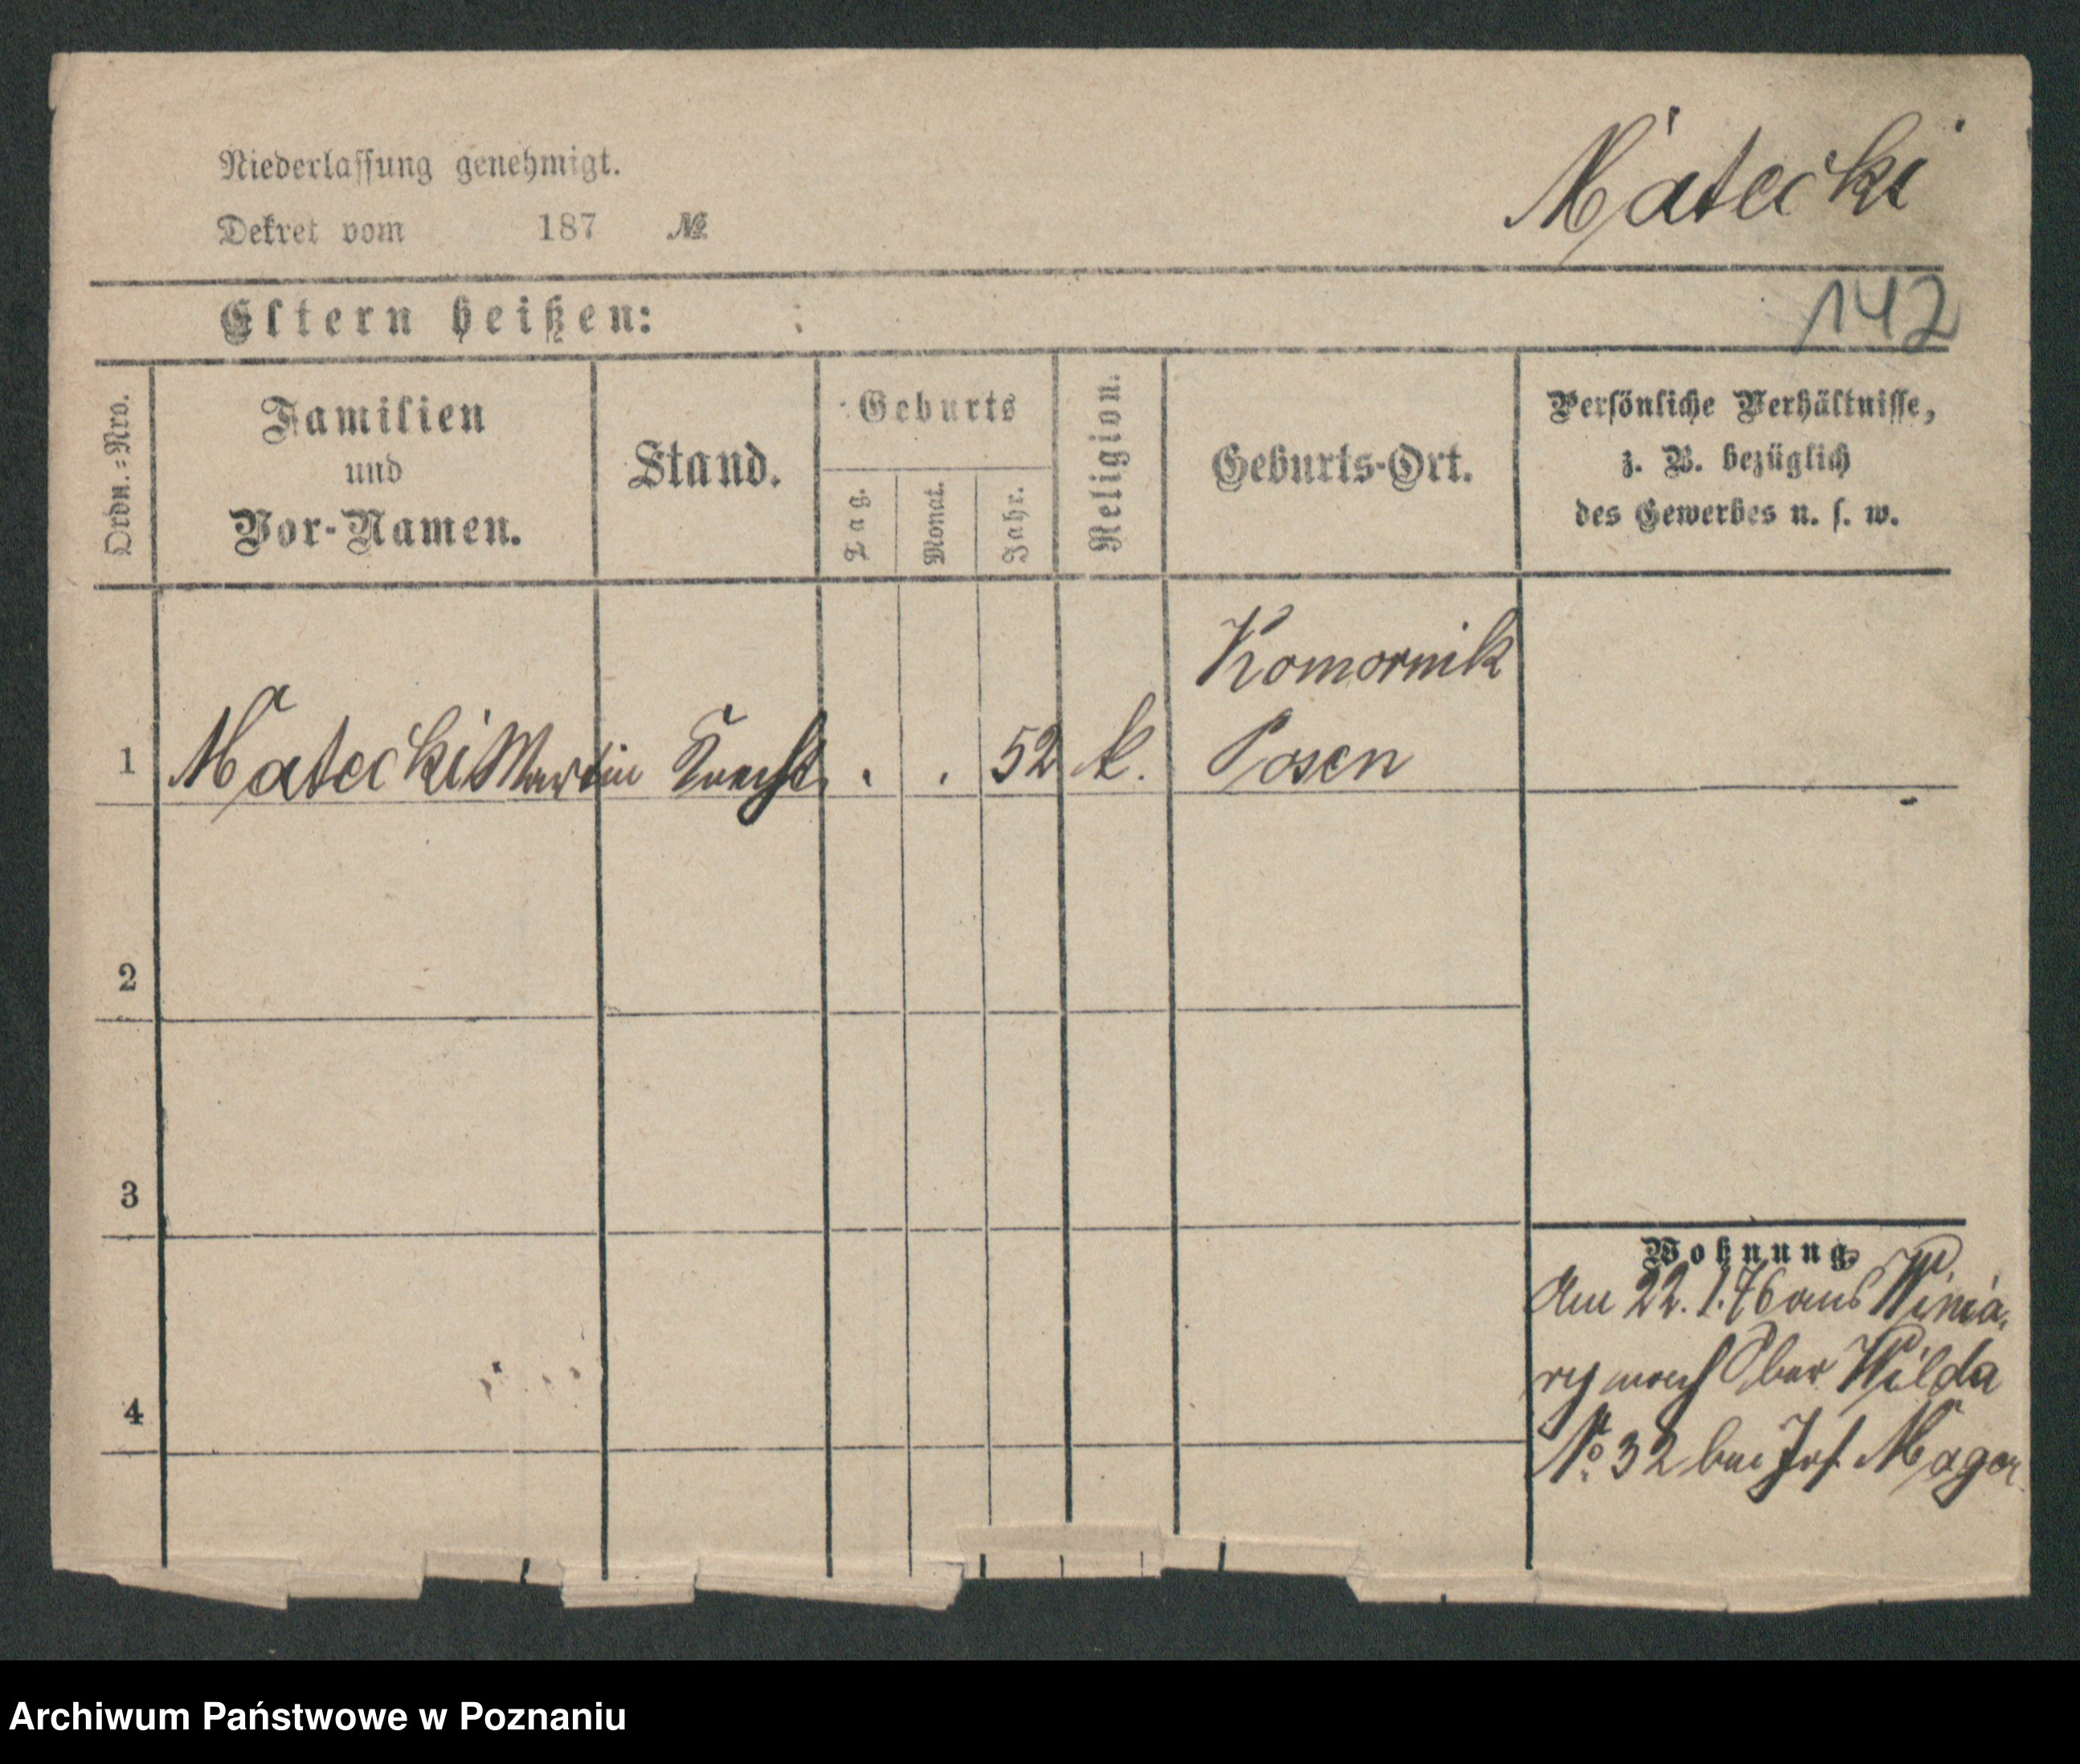 Matecki
Niederlassung genehmigt.
Dekret vom 187 №
142
Eltern heißen:
Ordn.=Nro.
Familien
und
Vor-Namen.
Stand.
Geburts
Tag.
Monat.
Jahr.
Religion.
Geburts-Ort.
Persönliche Verhältnisse,
z. B. bezüglich
des Gewerbes u. s. w.
Komornik
1 Matecki Martin Knecht . . 52 k. Posen
2
3
4
Wohnung
Am 22. 1. 76 aus Winia-
ry nach Ober Wilda
№ 32 bei Jos. Mager
Archiwum Państwowe w Poznaniu